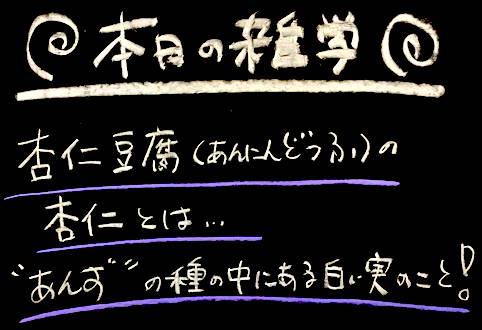 本日の雑学
杏仁豆腐(あんにんどうふ)の
杏仁とは…
"あんず"の種の中にある白い実のこと!